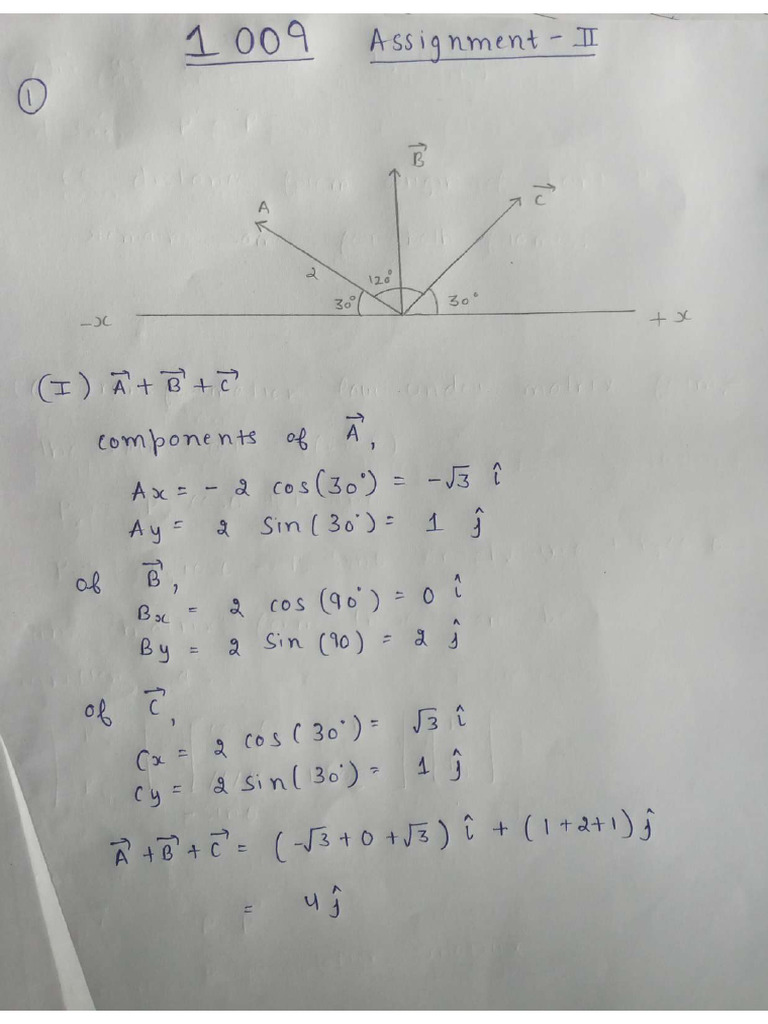 1009 Assignment - II
①
B⃗
C⃗
A
2
120°
30°
30°
-x
+x
(I) A⃗ + B⃗ + C⃗
components of A⃗,
Ax = - 2 cos(30°) = -√3 î
Ay = 2 sin(30°) = 1 ĵ
of B⃗,
Bx = 2 cos(90°) = 0 î
By = 2 sin(90) = 2 ĵ
of C⃗,
Cx = 2 cos(30°) = √3 î
Cy = 2 sin(30°) = 1 ĵ
A⃗ + B⃗ + C⃗ = (-√3 + 0 + √3) î + (1+2+1) ĵ
= 4 ĵ